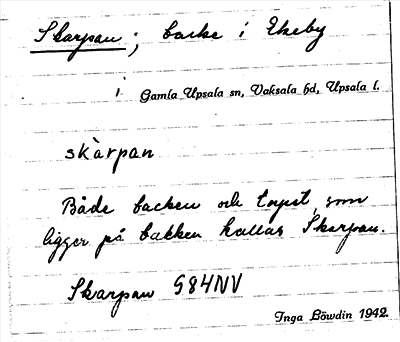 Skarpan; backe i Ekeby
i Gamla Upsala sn, Vaksala hd, Upsala l.
skàrpan
Både backen och torpet som
ligger på backen kallas Skarpan.
Skarpan 984NV
Inga Löwdin 1942.